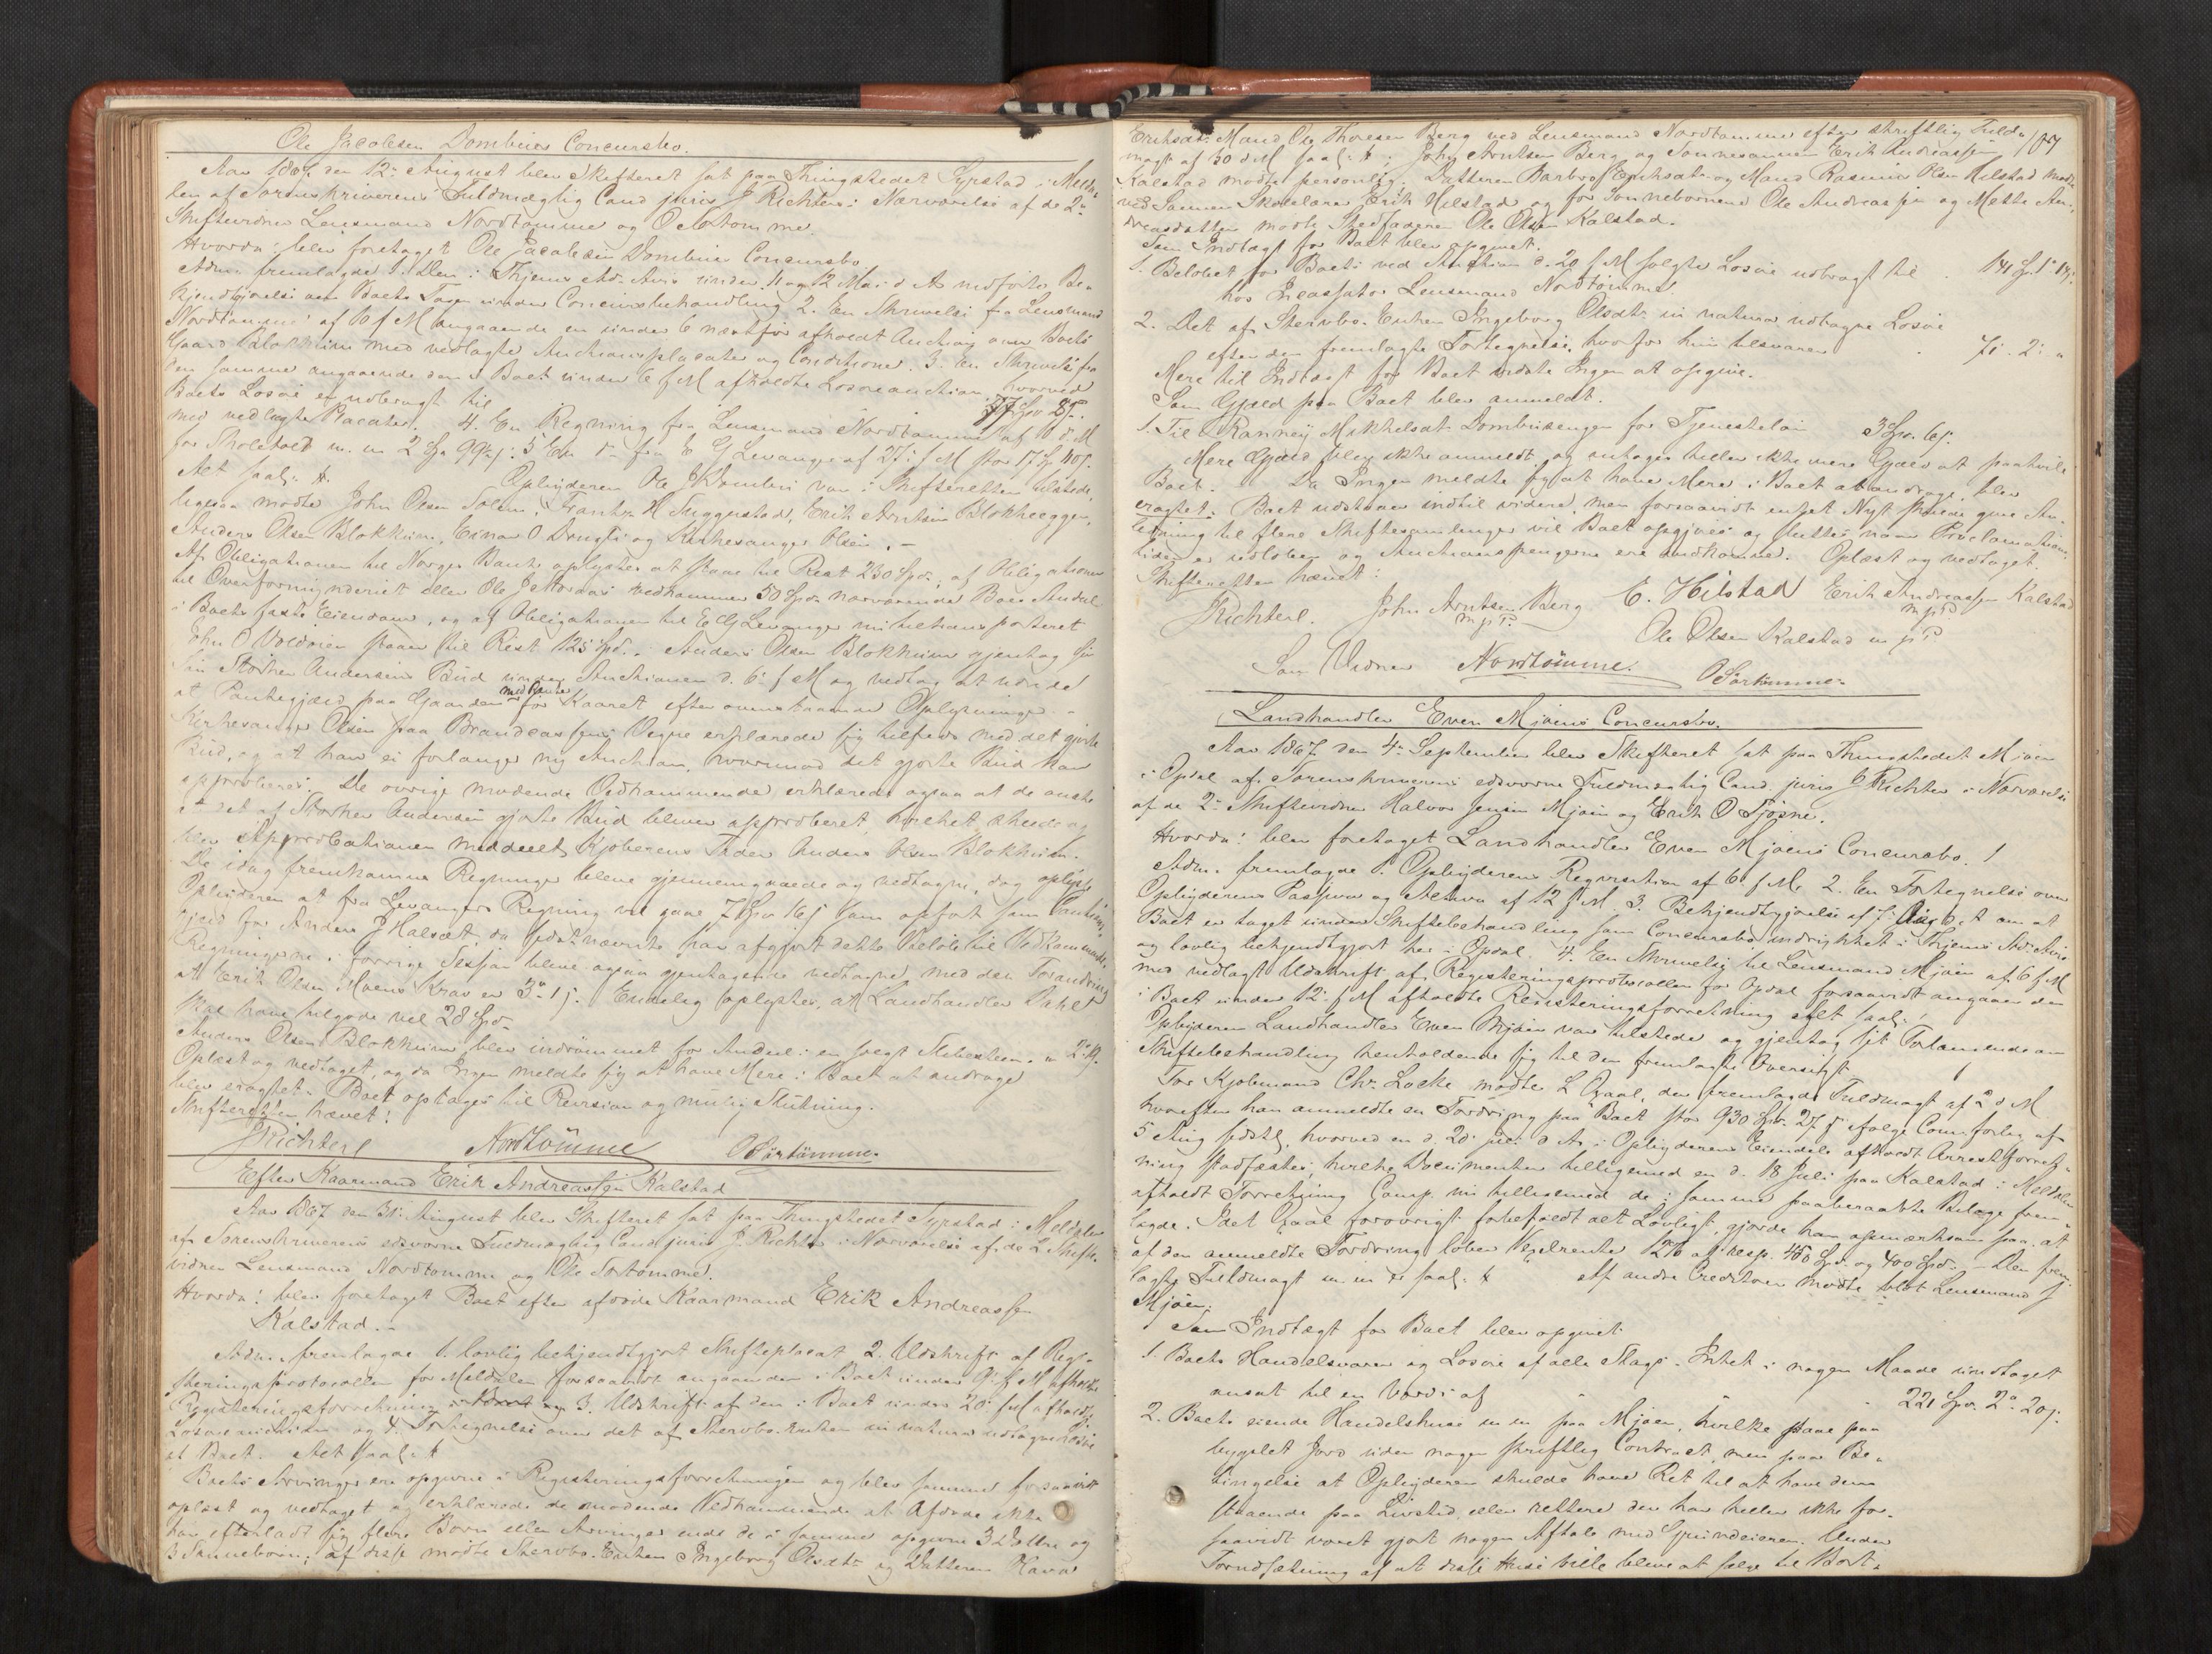 Ole Jacobsen Dombuens Concursbo.
Aar 1867 den 12te August blev Skifteret sat paa Thingstedet Syrstad i Melda-
len af Sorenskriverens Fuldmægtig Cand juris J Richter i Nærværelse af de 2de
Skiftevidner Lensmand Nordtømme og O Sortømme.
Hvorda: blev foretaget Ole Jacobsen Dombuens Concursbo
Adm. fremlagde 1. Den i Thjems Ad. Avis under 11 og 12 Mai d A indførte Be-
kjendtgjørelse om Boets Tagen under Concursbehandling 2. En Skrivelse fra Lensmand
Nordtømme af 10 f M angaaende en under 6 næstfør afholdt Auction over Boets
Gaard Blokhuus med vedlagte Auctionsplacater og Conditioner. 3. En Skrivelse fra
den samme angaaende den i Boet under 6 f M afholdte Løsøreauction, hvorved
Boets Løsøre er udbragt til 77 Spd
med vedlagte Placater. 4. En Regning fra Lensmand Nordtømme af 10 d. M
for m. m 2 Sp 99 s. 5 En do fra E G Levanger af 27 f M stor 17 Sp 40 s.
Alt saal: #. Opbyderen Ole J Dombu var i Skifteretten tilstede,
ligesaa mødte John Olsen Solem, Frantz H Snuggerstad, Erik Arntsen Blokheeggen,
Anders Olsen Blokhuus, Einar O Drugli og Kirkesanger Olsen. -
Af Obligationen til Norges Bank oplystes at staae til Rest 230 Spd, af Obligationen
til Overformynderiet eller Ole J vedkommer 50 Spd nærværende Boes Andel
i Boets faste Eiendom, og af Obligationen til E G Levanger nu transporteret
John O Voldøien staaer til Rest 125 Spd. Anders Olsen Blokhuus gjentog sin
Søn Størker Andersens Bud under Auctionen d. 6te f M og vedtog at udrede
al Pantegjæld paa Gaarden med Renter for Kaaret efter ovenstaaende Oplysninger. -
Kirkesanger Olsen paa Brandcassens Vegne erklærede sig tilfreds med det gjorte
Bud, og at han ei forlanger ny Auction, hvorimod det gjorte Bud kan
approberes. De øvrige mødende Vedkommende erklærede ogsaa at de ønske
at det af Størker Andersen gjorte Bud bliver approberet, hvilket skeede og
blev Approbationen meddeelt Kjøberens Fader Anders Olsen Blokhuus.
De idag fremkomne Regninger bleve gjennemgaaede og vedtagne, dog oplyste
Opbyderen at fra Levangers Regning vil gaae 7 Spd 16 s som opført som Cautions-
gjæld for Anders J Halsæt, da sidstnævnte har afgjort dette Beløb til Vedkommende.
Regningerne i forrige Session bleve ogsaa gjentagende vedtagne, med den Forandring
at Erik Olsen Moens Krav er 3 1 s. Endelig oplystes, at Landhandler Dahl
skal have tilgode vel 28 Spd
Anders Olsen Blokhuus blev indrømmet for Andeel i en solgt Slibesteen.
Oplæst og vedtaget, og da Ingen meldte sig at have Mere i Boet at andrage
blev eragtet. Boet optages til Revision og mulig Slutning.
Skifteretten hævet!
J Richter Nordtømme O Sortømme.
Efter Kaarmand Erik Andreassen Kalstad
Aar 1867 den 31te August blev Skifteret sat paa Thingstedet Syrstad i Meldalen
af Sorenskriverens edsvorne Fuldmægtig Cand juris J. Richter i Nærværelse af de 2 Skifte-
vidner Lensmand Nordtømme og Ole Sortømme.
Hvorda! blev foretaget Boet efter afdøde Kaarmand Erik Andreassen
Kalstad. -
Adm. fremlagde 1. lovlig bekjendtgjort Skifteplacat 2. Udskrift af Regi-
streringsprotocollen for Meldalen forsaavidt angaaer den i Boet under 9de f M afholdte
Registreringsforretning og 3. Udskrift af den i Boet under 20 f M afholdte
Løsøreauction og 4. Fortegnelse over det af Stervbo-Enken in natura udtagne Løsøre
af Boet. Alt saal: #
Boets Arvinger ere opgivne i Registreringsforretningen og blev samme forsaavidt
oplæst og vedtaget og erklærede de mødende Vedkommende at Afdøde ikke
har efterladt sig flere Børn eller Arvinger ende de i samme opgivne 3 Døttre og
3 Sønnebørn; af disse mødte Stervbo-Enken Ingeborg Olsdtr og Datteren Karen
107
Eriksdtr Mand Ole Thoresen Berg ved Lensmand Nordtømme efter skriftlig Fuld-
magt af 30 d M saal: #, John Arntsen Berg og Sønnesønnen Erik Andreassen
Kalstad mødte personlig; Datteren Barbro Eriksdtr og Mand Rasmus Olsen Hilstad mødte
ved Sønnen Skolelærer Erik Hilstad og for Sønnebørnene Ole Andreassen og Mette An-
dreasdatter mødte Stedfaderen Ole Olsen Kalstad.
Som Indtægt for Boet blev opgivet.
1. Beløbet for Boets ved Auction d. 20 f M solgte Løsøre udbragt til . 141 Sp. 1 14 s.
hos Incassator Lensmand Nordtømme.
2. Det af Stervbo-Enken Ingeborg Olsdtr in natura udtagne Løsøre
efter den fremlagte Fortegnelse, hvorfor hun tilsvarer 71. 2. "
Mere til Indtægt for Boet vidste Ingen at opgive.
Som Gjæld paa Boet blev anmeldt.
1. Til Ranney Mikkelsdtr Dombuesengen for Tjenesteløn 3 Spd. 60 s.
Mere Gjæld blev ikke anmeldt og antages heller ikke mere Gjæld at paahvile
Boet. Da Ingen meldte sig at have Mere i Boet at andrage, blev
eragtet. Boet udstaaer indtil videre, men forsaavidt intet Nyt skulde give An-
ledning til flere Skiftesamlinger vil Boet opgjøres og sluttes naar Proclamations-
tiden er udløben og Auctionspengene ere indkomne. Oplæst og vedtaget.
Skifteretten hævet!
J Richter. John Arntsen Berg E. Hilstad Erik Andreassen Kalstad
m p P. m p P
Ole Olsen Kalstad m p P
Som Vidner Nordtømme. O Sortømme.
Landhandler Even Mjøens Concursbo.
Aar 1867 den 4de September blev Skifteret sat paa Thingstedet Mjøen
i Opdal af Sorenskriverens edsvorne Fuldmægtig Cand. juris J Richter i Nærværelse
af de 2de Skiftevidner Halvor Jensen Mjøen og Erik O Sjøsne.
Hvorda! blev foretaget Landhandler Even Mjøens Concursbo. /
Adm. fremlagde 1. Opbyderens Requisition af 6te f M. 2. En Fortegnelse over
Opbyderens Passiva og Activa af 12 f M. 3. Bekjendtgjørelse af 7 Aug d A om at
Boet er taget under Skiftebehandling som Concursbo indrykket i Thjems Ad. Avis
og lovlig bekjendtgjort her i Opdal. 4. En Skrivelse til Lensmand Mjøen af 6 f M
med vedlagt Udskrift af Registreringsprotocollen for Opdal forsaavidt angaaer den
i Boet under 12te f M afholdte Registreringsforretning alt saal: /
Opbyderen Landhandler Even Mjøen var tilstede og gjentog sit Forlangende om
Skiftebehandling henholdende sig til den fremlagte Oversigt.
For Kjøbmand Chr. Løcke mødte L Qvaal, der fremlagde Fuldmagt af 2 d M
hvorefter han anmeldte en Fordring paa Boet stor 930 Spd. 27 s ifølge Com. forlig af
5 Aug sidstl, hvorved en d. 20 Juli d A i Opbyderens Eiendele afholdt Arrestforret-
ning stadfæstes, hvilke Documenter tilligemed en d. 18 Juli paa Kalstad i Meldalen
afholdt Forretning Comp. nu tilligemed de i samme paaberaabte Bilage frem-
lagde. Idet Qvaal forøvrigt forbeholdt alt Lovligt, gjorde han opmærksom paa, at
af den anmeldte Fordring løber Vexelrente 12% af resp. 450 Spd. og 400 Spd. - Den frem-
lagte Fuldmagt m. m er saal: # Af andre Creditorer mødte blot Lensmand J
Mjøen.
Som Indtægt for Boet blev opgivet
1. Boets Handelsvarer og Løsøre af alle Slags - Intet i nogen Maade undtaget
ansat til en Værdi af 221 Spd. 2 20 s.
2. Boets eiende Handelshuse m m paa Mjøen, hvilke staae paa
bygslet Jord uden nogen skriftlig Contract, men paa Be-
tingelse at Opbyderen skulde have Ret til at have dem
staaende paa Livstid, eller rettere der har heller ikke for-
saavidt været gjort nogen Aftale med Grundeieren. Under
Forudsætning af at disse Huse ville blive at sælge til Bort-